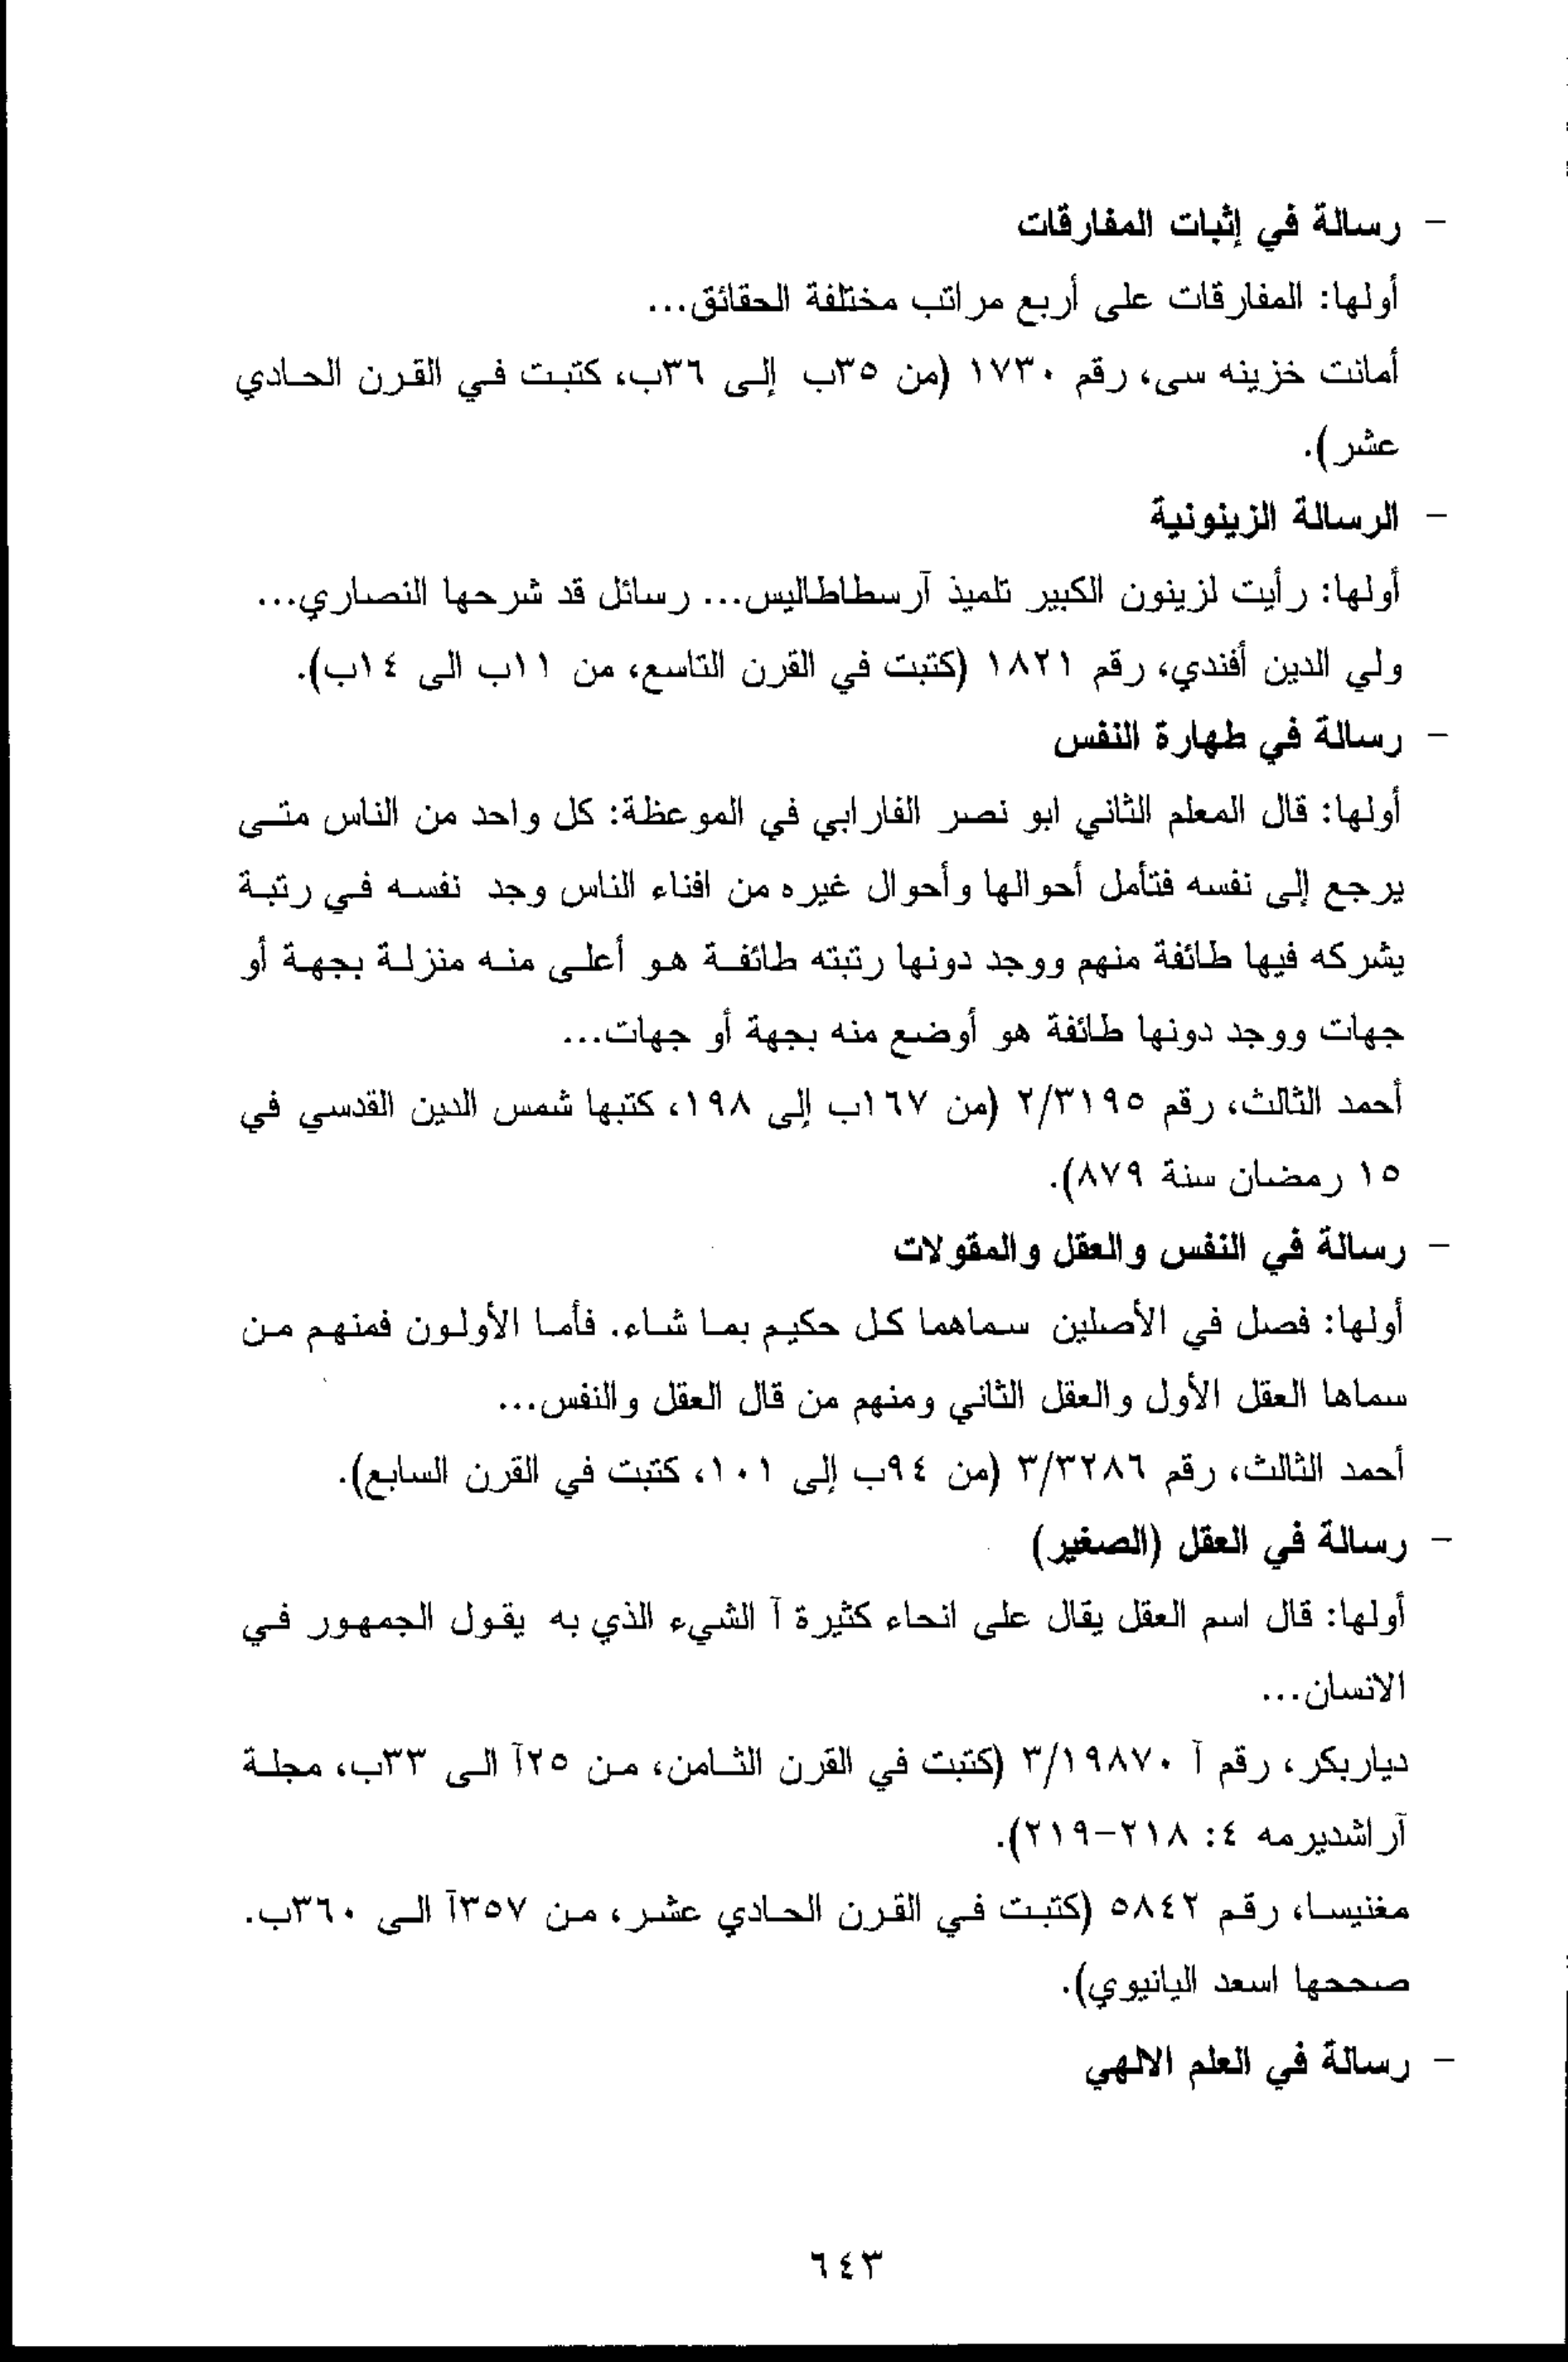 - رسالة في إثبات المفارقات
أولها: المفارقات على أربع مراتب مختلفة الحقائق...
أمانت خزينه سى، رقم ١٧٣٠ (من ٣٥ب إلى ٣٦ب، كتبت في القرن الحادي
عشر).
- الرسالة الزينونية
أولها: رأيت لزينون الكبير تلميذ آرسطاطاليس... رسائل قد شرحها النصاري...
ولي الدين أفندي، رقم ١٨٢١ (كتبت في القرن التاسع، من ١١ب الى ١٤ب).
- رسالة في طهارة النفس
أولها: قال المعلم الثاني ابو نصر الفارابي في الموعظة: كل واحد من الناس متى
يرجع إلى نفسه فتأمل أحوالها وأحوال غيره من افناء الناس وجد نفسه في رتبة
يشركه فيها طائفة منهم ووجد دونها رتبته طائفة هو أعلى منه منزلة بجهة أو
جهات ووجد دونها طائفة هو أوضع منه بجهة أو جهات...
أحمد الثالث، رقم ٢/٣١٩٥ (من ١٦٧ب إلى ١٩٨، كتبها شمس الدين القدسي في
١٥ رمضان سنة ٨٧٩).
- رسالة في النفس والعقل والمقولات
أولها: فصل في الأصلين سماهما كل حكيم بما شاء. فأما الأولون فمنهم من
سماها العقل الأول والعقل الثاني ومنهم من قال العقل والنفس...
أحمد الثالث، رقم ٣/٣٢٨٦ (من ٩٤ب إلى ١٠١، كتبت في القرن السابع).
- رسالة في العقل (الصغير)
أولها: قال اسم العقل يقال على انحاء كثيرة آ الشيء الذي به يقول الجمهور في
الانسان...
دياربكر، رقم آ ٣/١٩٨٧٠ (كتبت في القرن الثامن، من ٢٥آ الى ٣٣ب، مجلة
آراشديرمه ٤: ٢١٨-٢١٩).
مغنيسا، رقم ٥٨٤٢ (كتبت في القرن الحادي عشر، من ٣٥٧آ الى ٣٦٠ب.
صححها اسعد اليانيوي).
- رسالة في العلم الالهي
٦٤٣